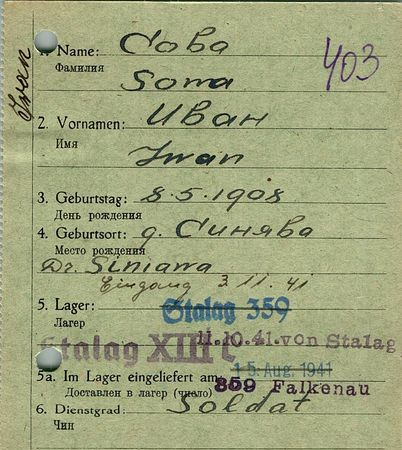 1. Name: Сова
Фамилия
Sowa
403
Iwan
2. Vornamen: Иван
Имя
Iwan
3. Geburtstag: 8.5.1908
День рождения
4. Geburtsort: д. Синява
Место рождения
Dr. Siniawa
Eingang 3.11.41
5. Lager: Stalag 359
Лагер
11.10.41. von Stalag
Stalag XIII C
15. Aug. 1941
5a. Im Lager eingeliefert am: 359 Falkenau
Доставлен в лагер (число)
6. Dienstgrad: Soldat
Чин